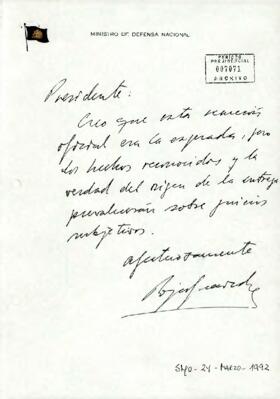 MINISTRO DE DEFENSA NACIONAL
PERIODO
PRESIDENCIAL
007071
ARCHIVO
Presidente:
Creo que esta reunión
oficial era la esperada, pero
los hechos reconocidos y la
verdad del origen de la entrega
prevalecerán sobre juicios
subjetivos.
afectuosamente
STGO - 24 - MARZO - 1992